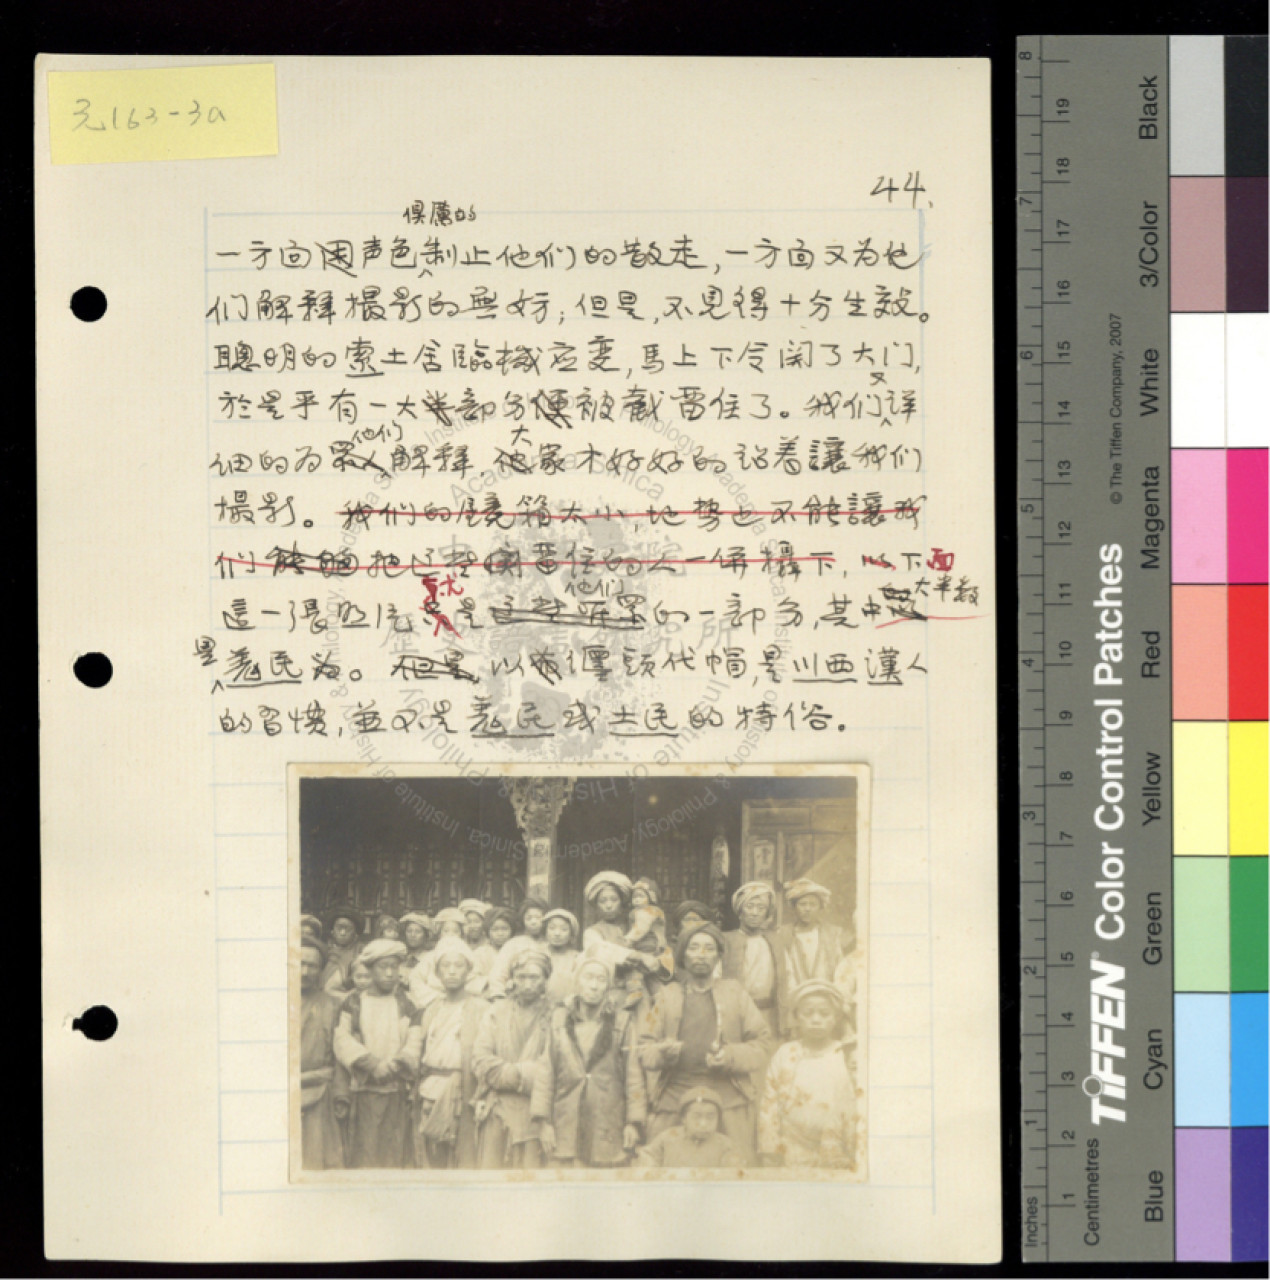 元163-3a
44.
俱厲的
一方面用声色制止他们的散走,一方面又为他
们解释摄影的無妨;但是,不見得十分生效。
聰明的索土舍臨機应变,馬上下令関了大门,
又
於是乎有一大半部分便被截留住了。我们詳
他们 大
细的为眾人解釋,他家才好好的站着讓我们
撮影。我们的镜箱太小,地势也不能讓我
们把这些留住的人一併攝下,以下面
就 他们 大半数
這一張照片只是這些所罣的一部分,其中
是
羌民
。但是,以布缠頭代帽,是川西漢人
的習慣,並不是羌民或土民的特俗。
Institute of History & Philology, Academia Sinica
中央研究院歷史語言研究所
Inches
1 2 3 4 5 6 7 8
Centimetres
1 2 3 4 5 6 7 8 9 10 11 12 13 14 15 16 17 18 19
TIFFEN® Color Control Patches
© The Tiffen Company, 2007
Blue
Cyan
Green
Yellow
Red
Magenta
White
3/Color
Black